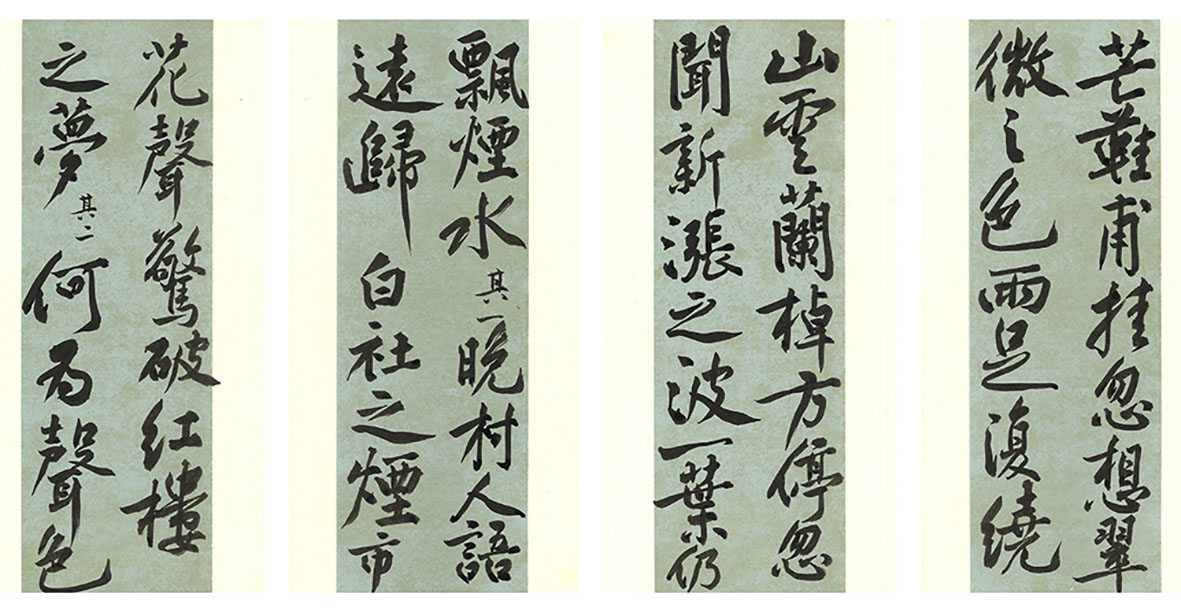 芒鞋甫挂忽想翠
微之色兩足復繞
山雲蘭棹方停忽
聞新漲之波一葉仍
飄煙水其一晚村人語
遠歸白社之煙市
花聲驚破紅樓
之夢其二何為聲色